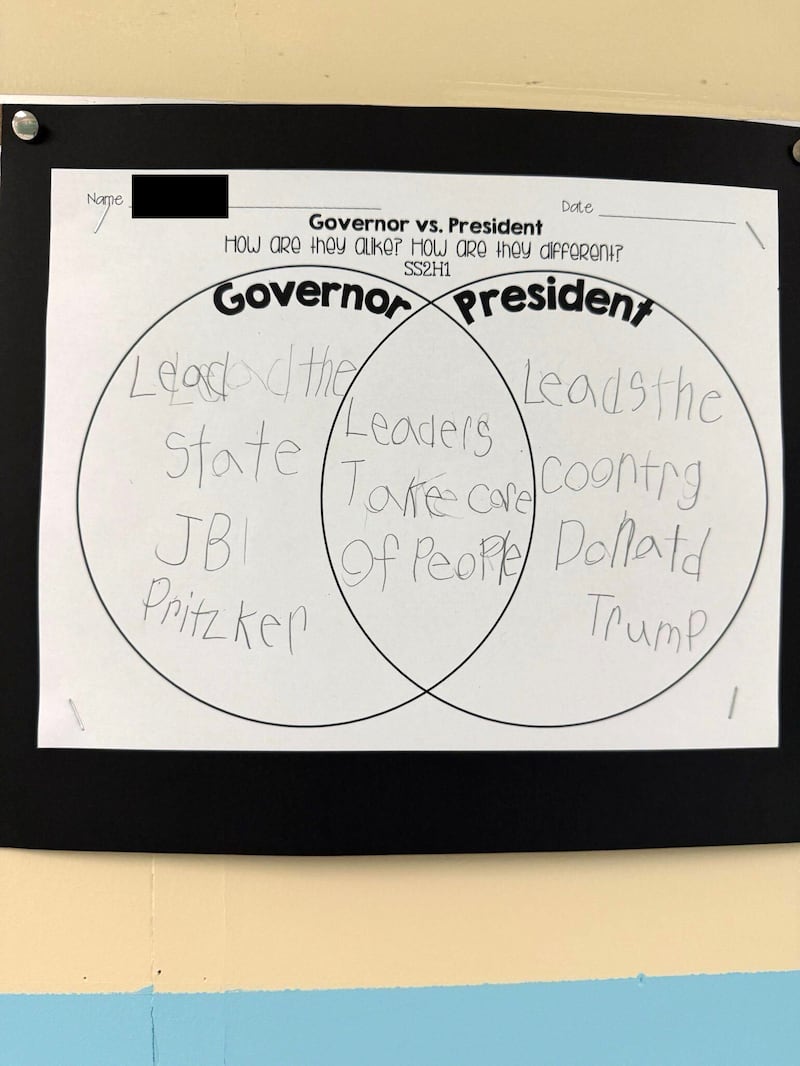 Name
Date
Governor vs. President
How are they alike? How are they different?
SS2H1
Governor
President
Lead the
State
JB
Pritzker
Leaders
Take care
Of People
Leads the
coontry
Donald
Trump